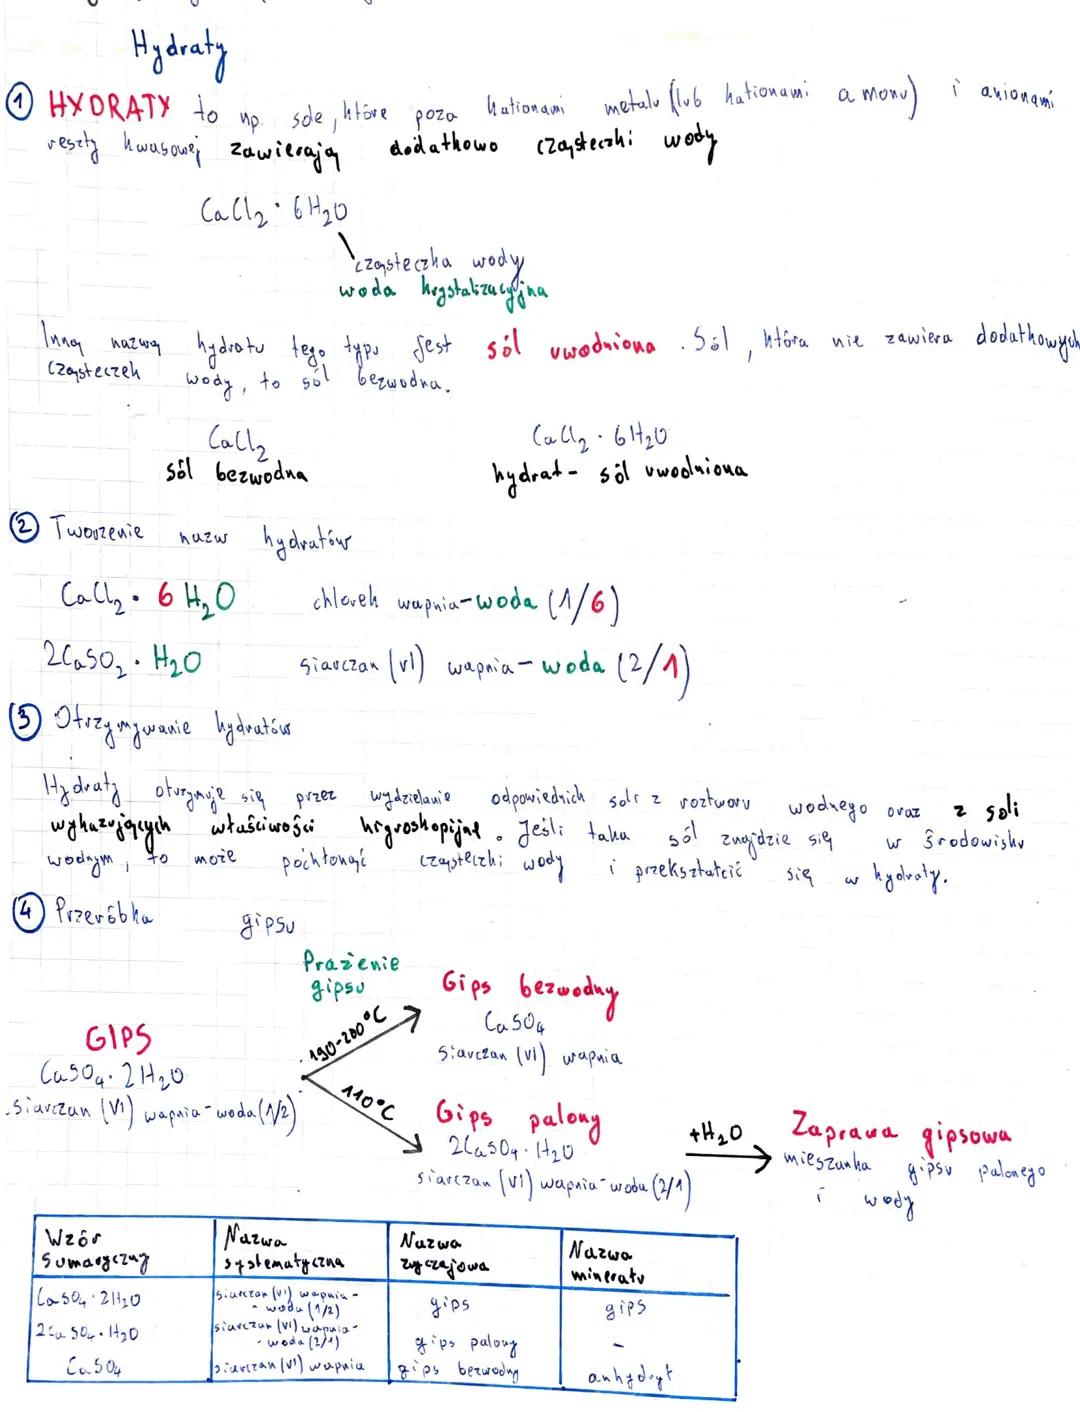 Hydraty
① HYDRATY to np. sole, które poza kationami metalu (lub kationami amonu) i anionami
reszty kwasowej zawierają dodatkowo cząsteczki wody
CaCl₂ · 6H₂O
cząsteczka wody
woda krystalizacyjna
Inną nazwą hydratu tego typu jest sól uwodniona. Sól, która nie zawiera dodatkowych
cząsteczek wody, to sól bezwodna.
CaCl₂ CaCl₂ · 6H₂O
sól bezwodna hydrat - sól uwodniona
② Tworzenie nazw hydratów
CaCl₂ · 6 H₂O chlorek wapnia-woda (1/6)
2CaSO₂ · H₂O siarczan (VI) wapnia - woda (2/1)
③ Otrzymywanie hydratów
Hydraty otrzymuje się przez wydzielanie odpowiednich soli z roztworu wodnego oraz z soli
wykazujących właściwości higroskopijne. Jeśli taka sól znajdzie się w środowisku
wodnym, to może pochłonąć cząsteczki wody i przekształcić się w hydraty.
④ Przeróbka gipsu
Prażenie
gipsu
Gips bezwodny
190-200°C
CaSO₄
siarczan (VI) wapnia
GIPS
CaSO₄ · 2H₂O
siarczan (VI) wapnia-woda (1/2)
110°C
Gips palony
2CaSO₄ · H₂O
siarczan (VI) wapnia-woda (2/1)
+H₂O
Zaprawa gipsowa
mieszanka gipsu palonego
i wody
Wzór Nazwa Nazwa Nazwa
sumaryczny systematyczna zwyczajowa minerału
CaSO₄ · 2H₂O siarczan (VI) wapnia- gips gips
-woda (1/2)
2CaSO₄ · H₂O siarczan (VI) wapnia- gips palony -
-woda (2/1)
CaSO₄ siarczan (VI) wapnia gips bezwodny anhydryt